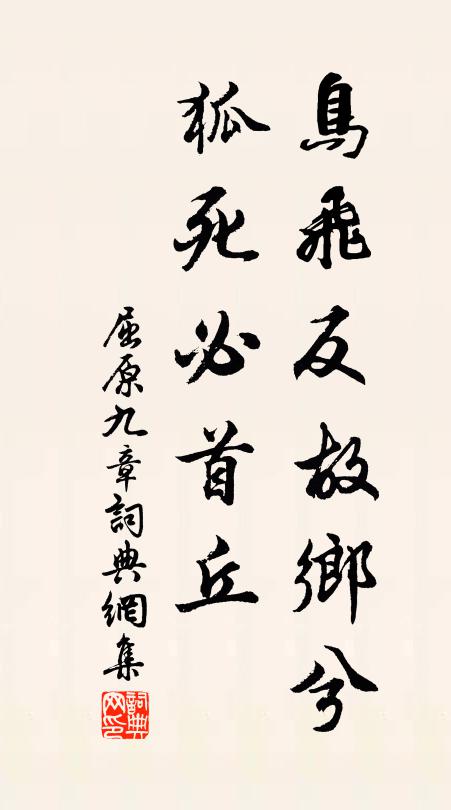 鳥飛反故鄉兮
狐死必首丘
屈原九章詞典網集
詞典網印